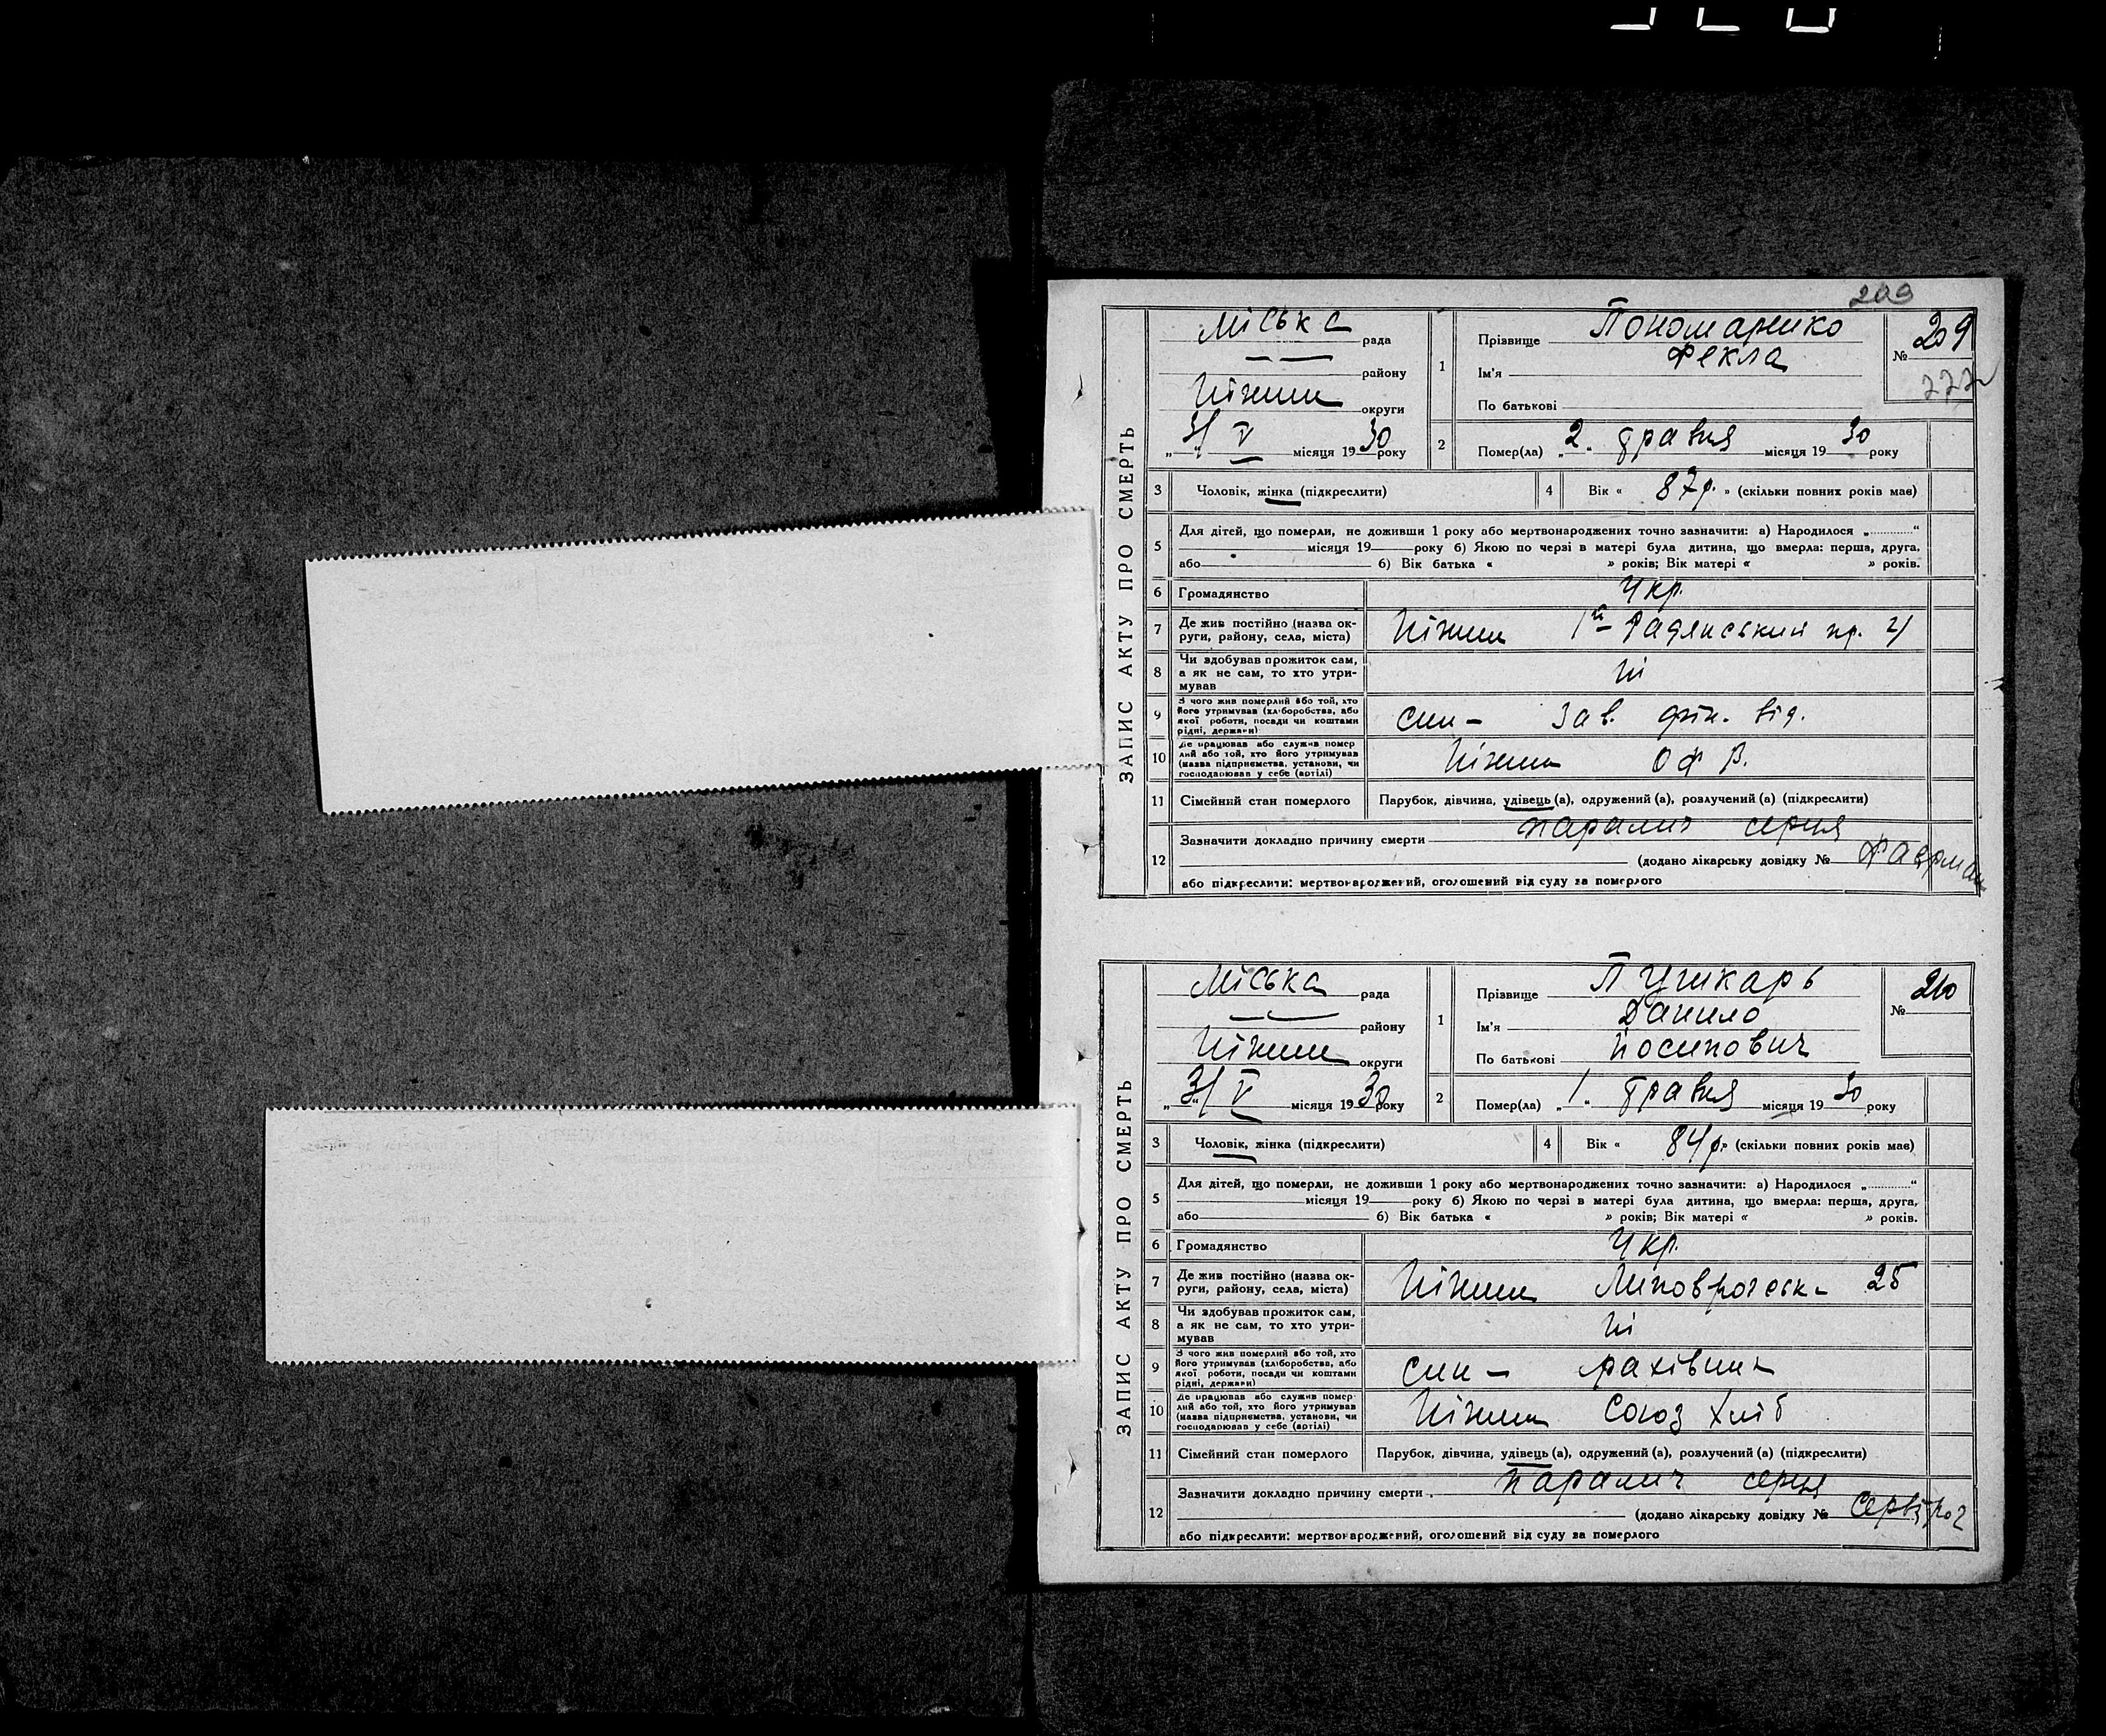 209
ЗАПИС АКТУ ПРО СМЕРТЬ
Міська рада
району
Ніжин округи
„3/" V місяця 1930 року
1
Прізвище Пономаренко
Ім'я Фекла
По батькові
№ 209
2
Помер(ла) „2" травня місяця 1930 року
3 Чоловік, жінка (підкреслити)
4 Вік « 87 р. » (скільки повних років має)
5 Для дітей, що померли, не доживши 1 року або мертвонароджених точно зазначити: а) Народилося „ “
місяця 19 року б) Якою по черзі в матері була дитина, що вмерла: перша, друга,
або б) Вік батька « » років; Вік матері « » років.
6 Громадянство Укр.
7 Де жив постійно (назва округи, району, села, міста) Ніжин 1й Радянський пр.
8 Чи здобував прожиток сам, а як не сам, то хто утримував Ні
9 З чого жив померлий або той, хто його утримував (хліборобства, або якої роботи, посади чи коштами рідні, держави) син – Зав. фін. від.
10 Де працював або служив помер лий або той, хто його утримував (назва підприємства, установи, чи господарював у себе (артілі) Ніжин ОФВ.
11 Сімейний стан померлого Парубок, дівчина, удівець (а), одружений (а), розлучений (а) (підкреслити)
12 Зазначити докладно причину смерти параліч серця
(додано лікарську довідку №
або підкреслити: мертвонароджений, оголошений від суду за померлого
ЗАПИС АКТУ ПРО СМЕРТЬ
Міська рада
району
Ніжин округи
„3/" V місяця 1930 року
1
Прізвище Пушкарь
Ім'я Данило
По батькові Йосипович
№ 210
2
Помер(ла) „1" травня місяця 1930 року
3 Чоловік, жінка (підкреслити)
4 Вік « 84 р. » (скільки повних років має)
5 Для дітей, що померли, не доживши 1 року або мертвонароджених точно зазначити: а) Народилося „ “
місяця 19 року б) Якою по черзі в матері була дитина, що вмерла: перша, друга,
або б) Вік батька « » років; Вік матері « » років.
6 Громадянство Укр.
7 Де жив постійно (назва округи, району, села, міста) Ніжин 25
8 Чи здобував прожиток сам, а як не сам, то хто утримував Ні
9 З чого жив померлий або той, хто його утримував (хліборобства, або якої роботи, посади чи коштами рідні, держави) син – рахівник
10 Де працював або служив помер лий або той, хто його утримував (назва підприємства, установи, чи господарював у себе (артілі) Ніжин Союз Хліб
11 Сімейний стан померлого Парубок, дівчина, удівець (а), одружений (а), розлучений (а) (підкреслити)
12 Зазначити докладно причину смерти параліч серця
(додано лікарську довідку №
або підкреслити: мертвонароджений, оголошений від суду за померлого